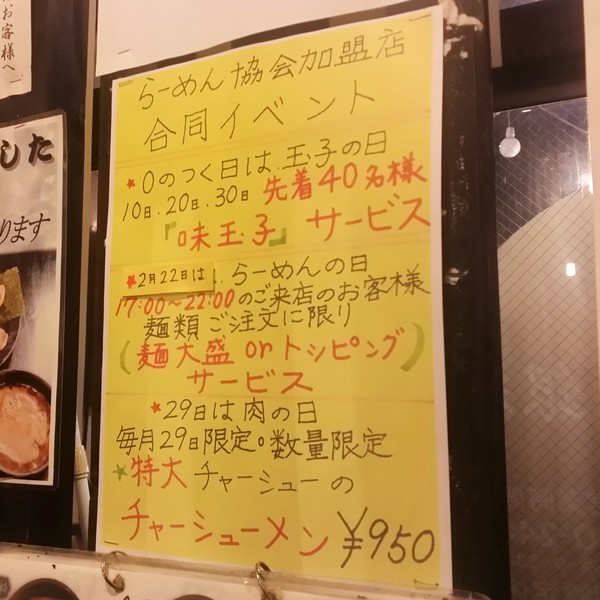 お客様へ
した
ります
らーめん協会加盟店
合同イベント
★0のつく日は玉子の日
10日.20日.30日 先着40名様
『味玉子』サービス
★2月22日は、らーめんの日
17:00~22:00のご来店のお客様
麺類ご注文に限り
(麺大盛 or トッピング)
サービス
★29日は肉の日
毎月29日限定。数量限定
★特大チャーシューの
チャーシューメン ¥950